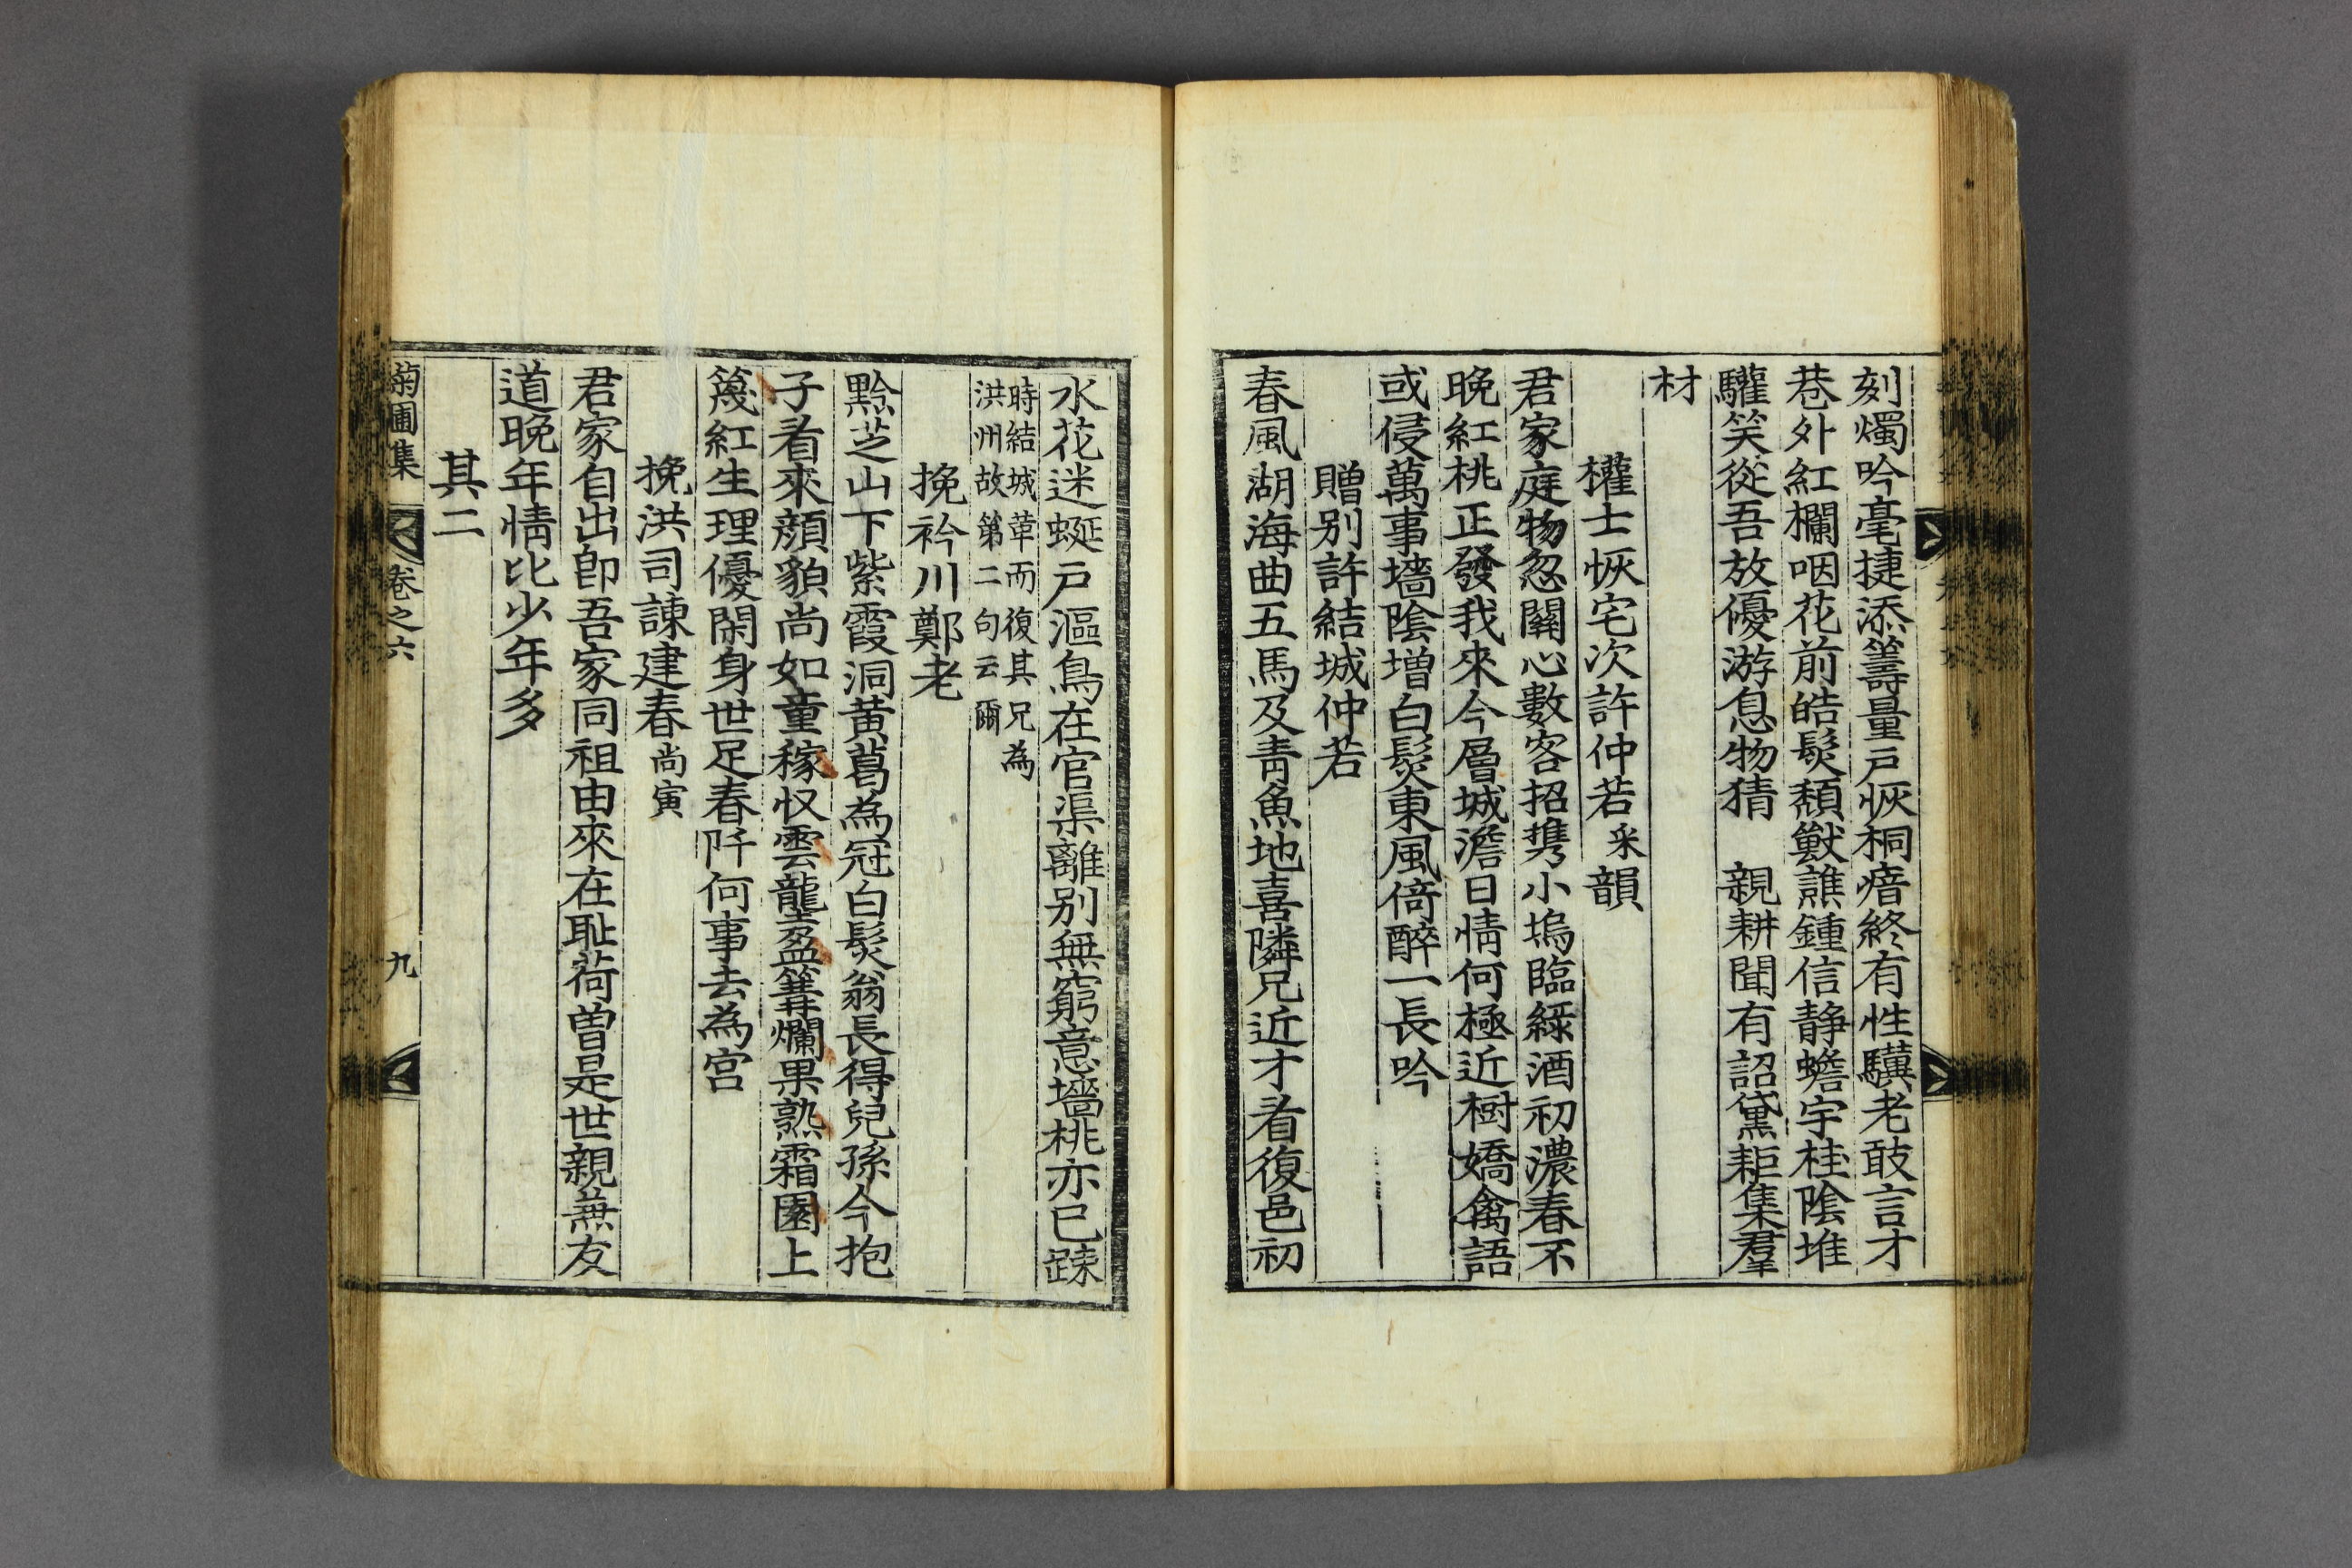 刻燭吟毫捷添籌量戶恢桐瘖終有性驥老敢言才
巷外紅欄咽花前皓髮頹獻譙鍾信靜蟾宇桂陰堆
驩笑從吾放優游息物猜 親耕聞有詔黛耟集羣
材
權士恢宅次許仲若釆韻
君家庭物忽關心數客招携小塢臨綠酒初濃春不
晚紅桃正發我來今層城澹日情何極近樹嬌禽語
或侵萬事墻陰增白髮東風倚醉一長吟
贈別許結城仲若
春風湖海曲五馬及靑魚地喜隣兄近才看復邑初
水花迷蜒戶漚鳥在官渠離別無窮意墻桃亦已踈
時結城革而復其兄為
洪州故第二句云爾
挽衿川鄭老
黔芝山下紫霞洞黃葛為冠白髮翁長得兒孫今抱
子看來顔貌尚如童稼収雲壟盈篝爛果熟霜園上
篾紅生理優閑身世足春阡何事去為宮
挽洪司諫建春尚寅
君家自出卽吾家同祖由來在恥荷曾是世親兼友
道晚年情比少年多
其二
菊圃集 卷之六 九